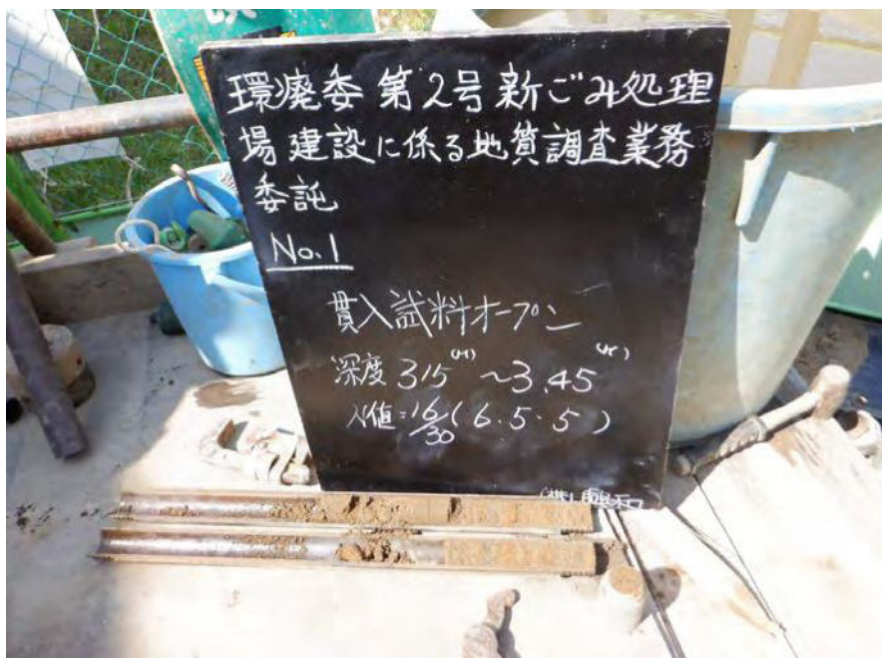 環廃委 第2号 新ごみ処理
場 建設に係る地質調査業務
委託
No.1
貫入試料オープン
深度 3.15(m) ~ 3.45(m)
N値=16/30 (6.5.5)
(株)興和